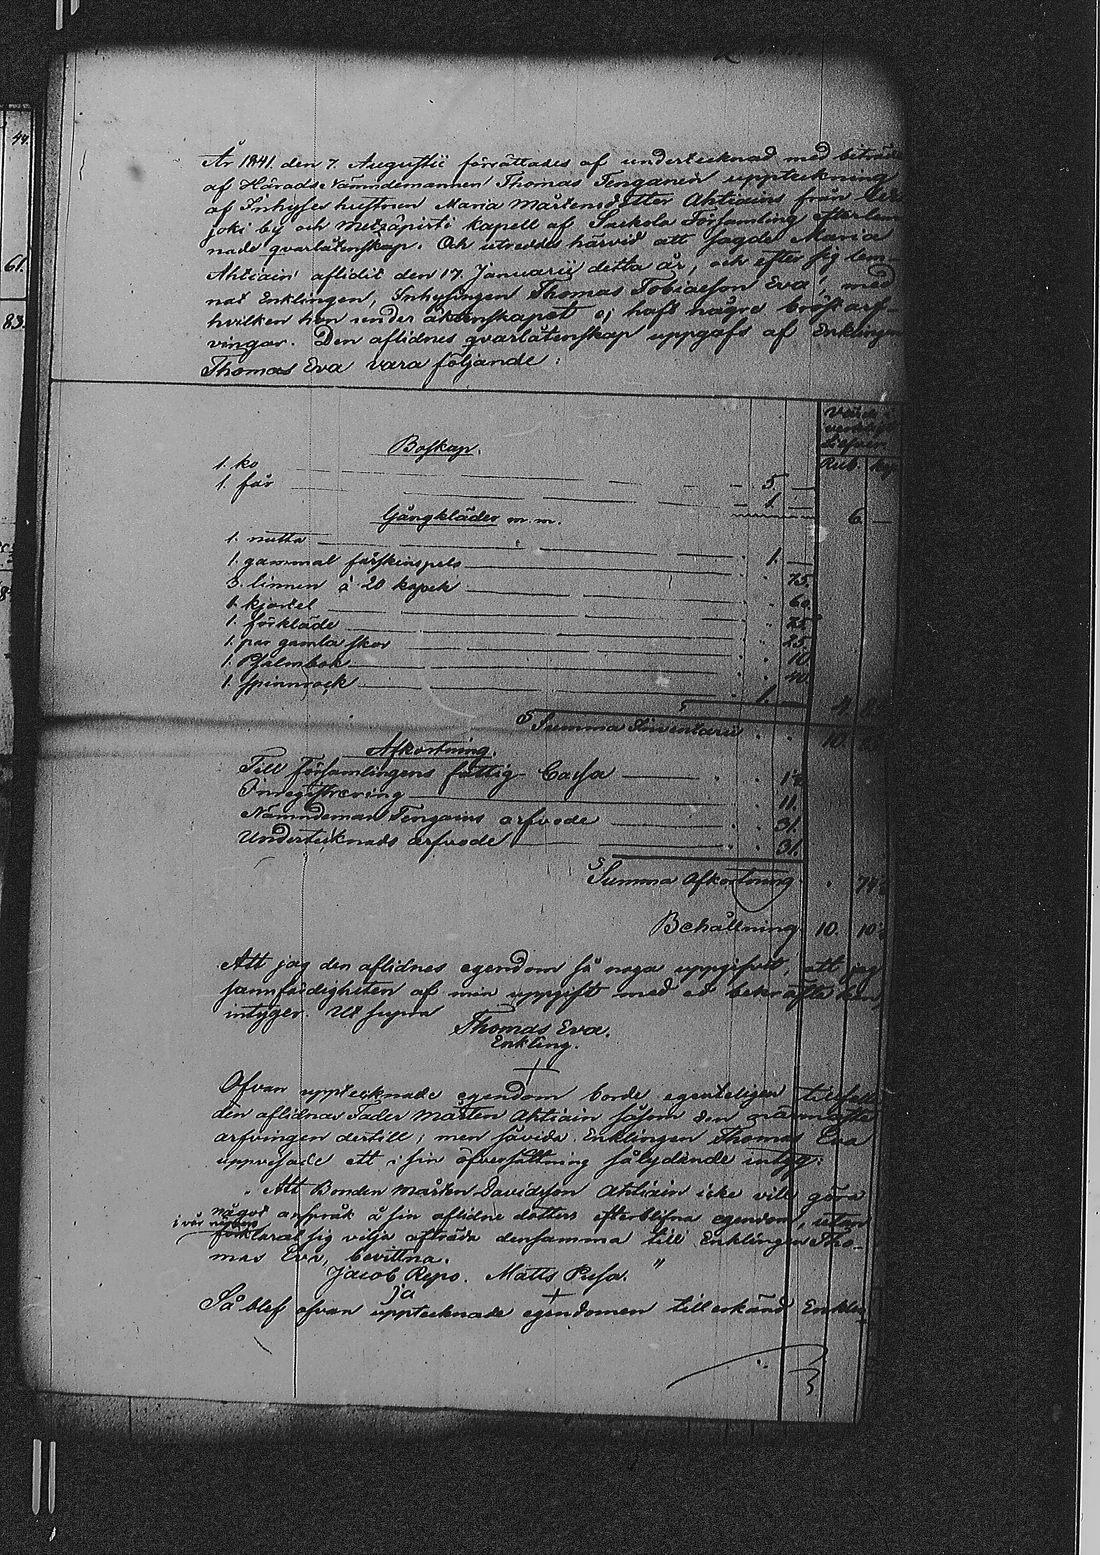 44.
61.
83.
År 1841 den 7. Augustii förrättades af undertecknad med biträde
af Härads Nämndemannen Thomas Tenganen uppteckning
af Inhyses hustrun Maria Mårtensdotter Ahtiains från
joki by och Metsäpirti kapell af Sackola Församling efterlem
nade qvarlåtenskap. Och utreddes härvid att sagde Maria
Ahtiain aflidit den 17 Januarii detta år, och efter sig lem-
nat Enklingen, Inhysingen Thomas Tobiasson Eva, med
hvilken hon under äktenskapet ej haft några bröst arf-
vingar. Den aflidnes qvarlåtenskap uppgafs af Enklingen
Thomas Eva vara följande:
Värde i
Rub. kop.
Boskap.
1. ko 5. —
1. får 1. — 6. —
Gångkläder m.m.
1. mutta 1. —
1. gammal fårskinspels 75.
3. linnen à 20 kopek 60.
1. kjortel 75.
1. förkläde 25.
1. par gamla skor 10.
1. Psalmbok 40.
1. spinnrock 1. — 4.
Summa Inventarii 10.
Afkortning.
Till församlingens fattig Cassa 1½
Inregistrering 11.
Nämndeman Tengains arfvode 31.
Undertecknads arfvode 31.
Summa Afkortning 74½
Behållning 10. 10½
Att jag den aflidnes egendom så noga uppgifvit, att jag
sannfärdigheten af min uppgift med ed bekräfta kan,
intygar. Ut supra
Thomas Eva.
Enkling.
Ofvan upptecknade egendom borde egenteligen tillfalla
den aflidnas Fader Mårten Ahtiain såsom den närmaste
arfvingen dertill; men såvida Enklingen Thomas Eva
uppvisade ett i sin öfversättning sålydande intyg:
„Att Bonden Mårten Davidsson Ahtiain icke vill göra
något anspråk å sin aflidne dotters efterblifna egendom, utan
i vår närvaro
förklarat sig vilja afträda densamma till Enklingen Tho-
mas Eva, bevittna.
Jacob Repo. Matts Pusa."
ja
Så blef ofvan upptecknade egendomen tillerkänd Enklin